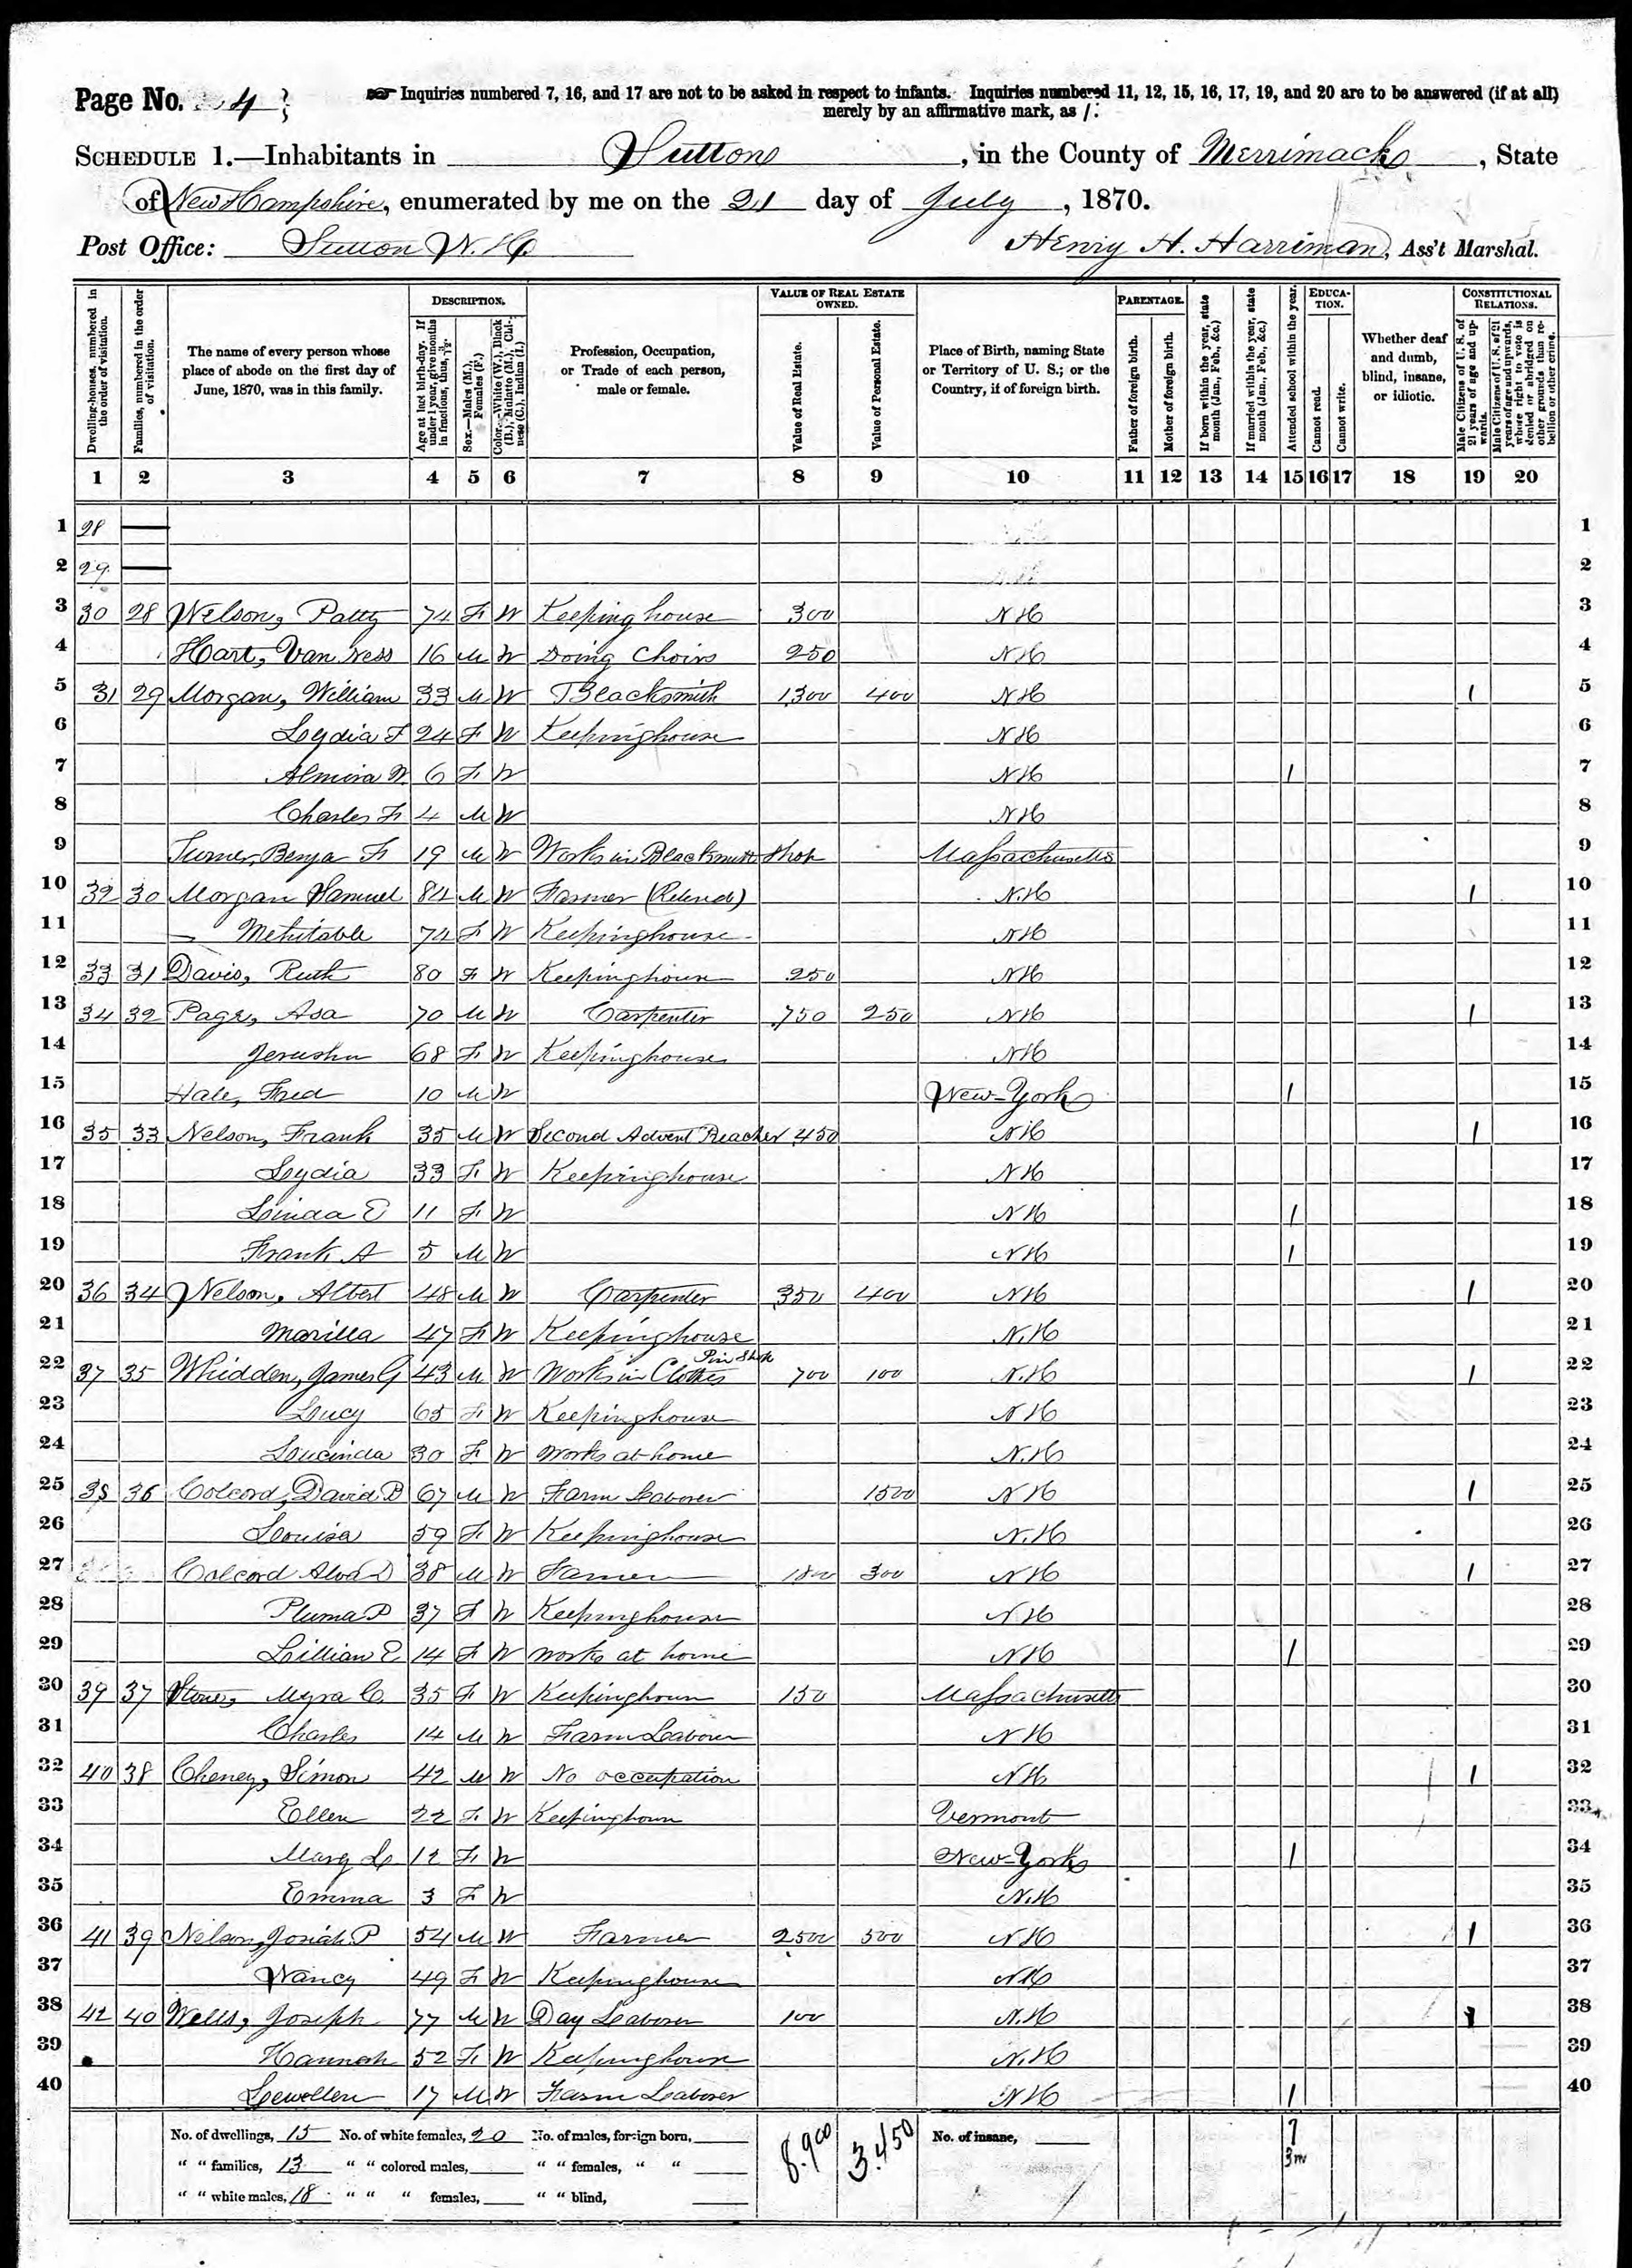 Page No. 4
☞ Inquiries numbered 7, 16, and 17 are not to be asked in respect to infants. Inquiries numbered 11, 12, 15, 16, 17, 19, and 20 are to be answered (if at all)
merely by an affirmative mark, as /.
SCHEDULE 1.—Inhabitants in Sutton, in the County of Merrimack, State
of New Hampshire, enumerated by me on the 21 day of July, 1870.
Post Office: Sutton N.H. Henry H. Harriman, Ass't Marshal.
Dwelling-houses, numbered in the order of visitation.
Families, numbered in the order of visitation.
The name of every person whose place of abode on the first day of June, 1870, was in this family.
DESCRIPTION.
Age at last birth-day. If under 1 year, give months in fractions, thus, 3/12.
Sex.—Males (M.), Females (F.)
Color.—White (W.), Black (B.), Mulatto (M.), Chinese (C.), Indian (I.)
Profession, Occupation, or Trade of each person, male or female.
VALUE OF REAL ESTATE OWNED.
Value of Real Estate.
Value of Personal Estate.
Place of Birth, naming State or Territory of U. S.; or the Country, if of foreign birth.
PARENTAGE.
Father of foreign birth.
Mother of foreign birth.
If born within the year, state month (Jan., Feb., &c.)
If married within the year, state month (Jan., Feb., &c.)
Attended school within the year.
EDUCATION.
Cannot read.
Cannot write.
Whether deaf and dumb, blind, insane, or idiotic.
CONSTITUTIONAL RELATIONS.
Male Citizens of U. S. of 21 years of age and upwards.
Male Citizens of U. S. of 21 years of age and upwards, whose right to vote is denied or abridged on other grounds than rebellion or other crime.
1 2 3 4 5 6 7 8 9 10 11 12 13 14 15 16 17 18 19 20
1 28 — 1
2 29 — 2
3 30 28 Nelson, Patty 74 F W Keeping house 300 NH 3
4 Hart, Van Ness 16 M W Doing Choirs 250 NH 4
5 31 29 Morgan, William 33 M W Blacksmith 1300 400 NH 1 5
6 Lydia F 24 F W Keepinghouse NH 6
7 Almira W 6 F W NH 1 7
8 Charles F 4 M W NH 8
9 Turner, Benja F 19 M W Works in Blacksmith Shop Massachusetts 9
10 32 30 Morgan Samuel 84 M W Farmer (Retired) N.H 1 10
11 Mehitable 74 F W Keepinghouse NH 11
12 33 31 Davis, Ruth 80 F W Keepinghouse 250 NH 12
13 34 32 Page, Asa 70 M W Carpenter 750 250 NH 1 13
14 Jerusha 68 F W Keepinghouse NH 14
15 Hale, Fred 10 M W New-York 1 15
16 35 33 Nelson, Frank 35 M W Second Advent Preacher 450 NH 1 16
17 Lydia 33 F W Keepinghouse NH 17
18 Linda E 11 F W NH 1 18
19 Frank A 5 M W NH 1 19
20 36 34 Nelson, Albert 48 M W Carpenter 350 400 NH 1 20
21 Marilla 47 F W Keepinghouse N.H 21
22 37 35 Whidden, James G 43 M W Works in Clothes Pin Shop 700 100 N.H 1 22
23 Lucy 65 F W Keepinghouse NH 23
24 Loucinda 30 F W Works at home N.H 24
25 38 36 Colcord, David B 67 M W Farm Laborer 1500 NH 1 25
26 Louisa 59 F W Keepinghouse N.H 26
27 Colcord Alva D 38 M W Farmer 1800 300 NH 1 27
28 Pluma P 37 F W Keepinghouse NH 28
29 Lillian E 14 F W Works at home NH 1 29
30 39 37 Stone, Myra C. 35 F W Keepinghouse 150 Massachusetts 30
31 Charles 14 M W Farm Laborer NH 31
32 40 38 Cheney, Simon 42 M W No occupation NH 1 32
33 Ellen 22 F W Keepinghouse Vermont 33
34 Mary L 12 F W New-York 1 34
35 Emma 3 F W N.H 35
36 41 39 Nelson, Josiah P 54 M W Farmer 2500 500 NH 1 36
37 Nancy 49 F W Keepinghouse NH 37
38 42 40 Wells, Joseph 77 M W Day Laborer 100 N.H 1 38
39 Hannah 52 F W Keepinghouse N.H 39
40 Lewellen 17 M W Farm Laborer NH 1 40
No. of dwellings, 15 No. of white females, 20 No. of males, foreign born, 8.900 3.450 No. of insane, 7
" " families, 13 " " colored males, " " females, " " 3m
" " white males, 18 " " " females, " " blind,